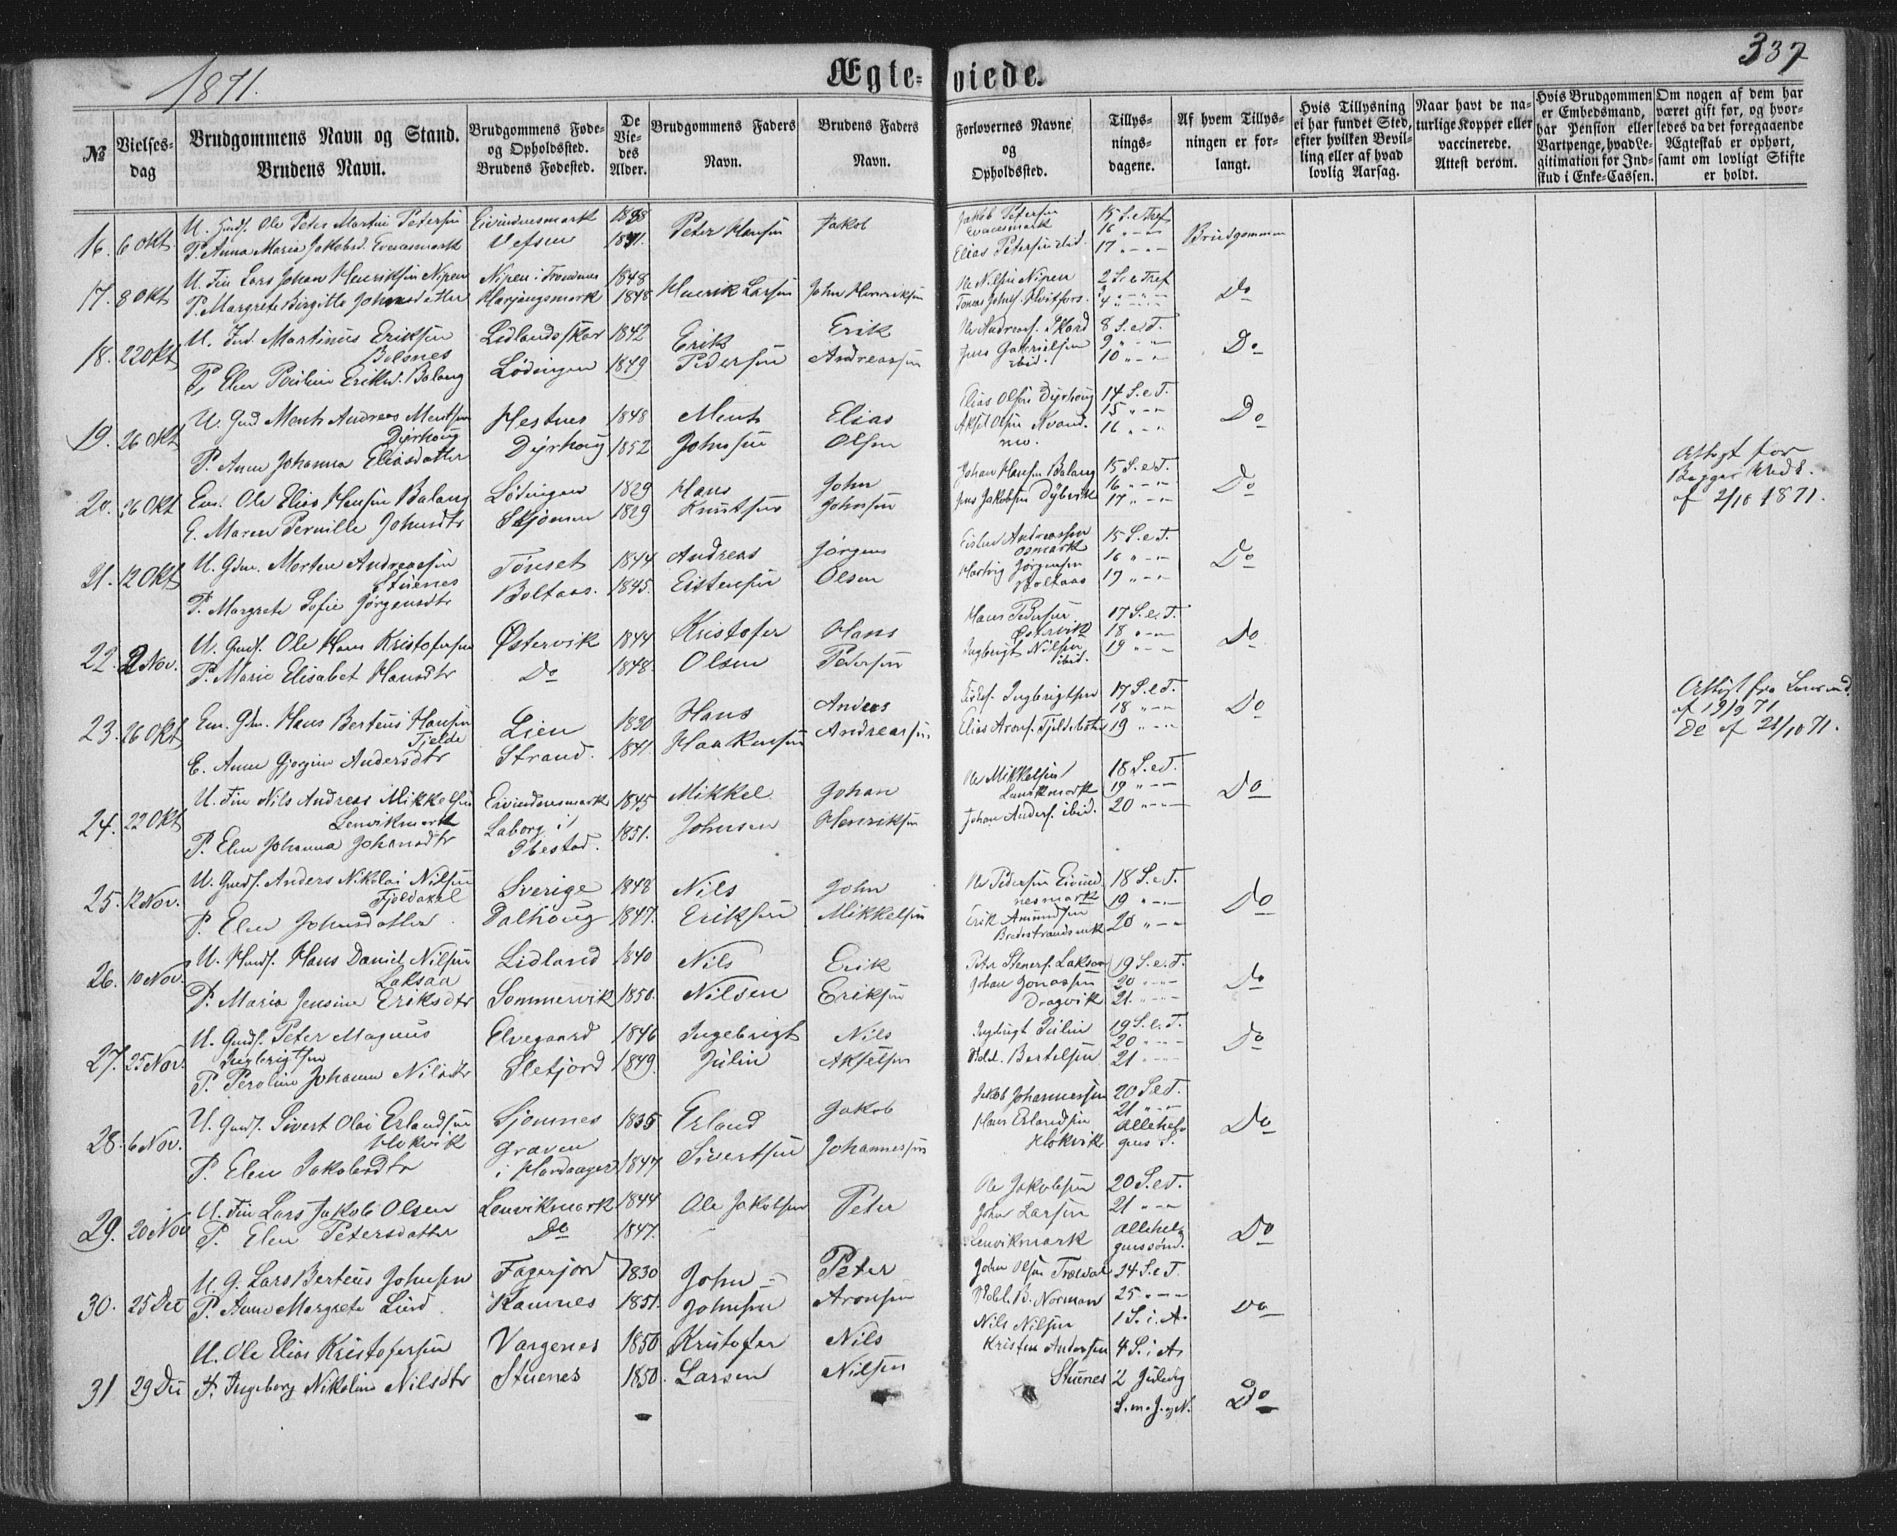 1871.
Ægteviede.
337
№
Vielses-
dag
Brudgommens Navn og Stand.
Brudens Navn.
Brudgommens Føde-
og Opholdssted.
Brudens Fødested.
De
Vie-
des
Alder.
Brudgommens Faders
Navn.
Brudens Faders
Navn.
Forlovernes Navne
og
Opholdssted.
Tillys-
nings-
dagene.
Af hvem Tillys-
ningen er for-
langt.
Hvis Tillysning
ei har fundet Sted,
efter hvilken Bevil-
ling eller af hvad
lovlig Aarsag.
Naar havt de na-
turlige Kopper eller
vaccinerede.
Attest derom.
Hvis Brudgommen
er Embedsmand,
har Pension eller
Vartpenge, hvad Le-
gitimation for Ind-
skud i Enke-Cassen.
Om nogen af dem har
været gift før, og hvor-
ledes da det foregaaende
Ægteskab er ophørt,
samt om lovligt Skifte
er holdt.
16. 6 Okt U. Ole Peter Martin Petersen Eivindnesmark Peter Hansen Jakob Jakob Petersen 15 S.e.Tref
P. Anna Maria Jakobsd. Vefsen Elias Petersen ibid. 16 17 Brudgommen
17. 8 Okt U. Fin Lars Johan Henriksen Nipen Nipen i Trondenes 1848 Henrik Larsen John Henriksen Ole Nilsen Nipen 2 S.e.Tref
P. Margrete Birgitte Johnsdatter Harjangsmark 1848 Do
18. 22 Okt U. Ind. Martinus Eriksen Lidlandsskar 1842 Erik Erik Ole Andreas. Skard 8 S.e.T.
Balsnes Pedersen Andreassen Jens Gabrielsen ibid. 9 10 Do
P. Elen Pauline Eriksd. Balang Lødingen 1849
19. 26 Okt U. Gmd Ments Andreas Mentsen Hestnes 1848 Ments Elias Elias Olsen Dyrhoug 14 S.e.T.
Dyrhoug Johnsen Olsen Aksel Olsen 15 16 Do
P. Anne Johanna Eliasdatter Dyrhoug 1852
20. 26 Okt Em. Ole Elias Hansen Balang Lødingen 1829 Hans John Johan Hansen Balang 15 S.e.T.
E. Maren Pernille Johnsdtr Skjomen 1829 Knutsen Johnsen Jens Jakobsen Dybvik 16 17 Do
Attest for
Begges Vedk.
af 2/10 1871.
21. 12 Okt U. Gdm. Morten Andreassen Tønset 1844 Andreas Jørgen Eistein Andreassen 15 S.e.T.
Stuenes Eistensen Olsen Osmark 16
P. Margrete Sofie Jørgensdtr Boltaas. 1845. Hartvig Jørgensen Boltaas 17 Do
22. 2 Nov. U. Gmds. Ole Hans Kristofersen Østervik 1844 Kristofer Hans Hans Pedersen Østervik 17 S.e.T.
P. Marie Elisabet Hansdtr Do 1848. Olsen Pedersen Ingbrigt Nilsen ibid. 18 19 Do
23. 26 Okt Em. Gdm. Hans Berteus Hansen Lien 1830 Hans Anders Ingbrigtsen 17 S.e.T.
Fjelde Haakensen Andreassen Elias Arons. 18 19 Do
E. Anne Gjorgine Andersdtr Strand. 1841.
Attest fra
af 19/9 71
Do af 21/10 71.
24. 22 Okt U. Fin Nils Andreas Mikkelsen Eivindnesmark 1845 Mikkel Johan Ole Mikkelsen 18 S.e.T.
Lenvikmark Johnsen Henriksen 19 Do
P. Elen Johanna Johansdtr Laberg i
Ibestad. 1851. Johan Anders. ibid. 20
25. 12 Nov. U. Gmds. Anders Nikolai Nilsen Sverige 1848 Nils John Ole Pedersen Eivind- 18 S.e.T.
Fjeldaxel nesmark 19
P. Elen Johnsdatter. Dalhoug 1847. Eriksen Mikkelsen Erik Amundsen 20 Do
Bredestrandsvik
26. 10 Nov. U. Hmds. Hans Daniel Nilsen Lidland 1840 Nils Erik Peter Steners. Laksaa 19 S.e.T.
Laksaa Johan Jonassen 20
P. Maria Jensine Eriksdtr Sommervik 1850. Nilsen Eriksen Dragvik 21. Do
27. 25 Nov. U. Gmds. Peter Magnus Elvegaard 1846 Ingebrigt Nils Ingbrigt Julin 19 S.e.T.
Ingbrigtsen 20
P. Peroline Johanna Nilsdtr Sletjord 1849. Julin Akselsen Bertelsen 21 Do
28. 6 Nov. U. Gmds. Sivert Olai Erlandsen Sjomnes 1835 Erland Jakob Jakob Johannessen 20 S.e.T.
Hokvik Graven Hans Erlandsen 21
P. Elen Jakobsdtr i Hardanger 1847 Sivertsen Johannessen Hokvik Allehel-
gens S. Do
29. 20 Nov U. Fin Lars Jakob Olsen Lenvikmark 1844 Ole Jakobsen Peter Ole Jakobsen 20 S.e.T.
P. Elen Petersdatter Do 1847. Johan Larsen 21
Lenvikmark Allehel-
genssønd. Do
30. 25 Dec U. G. Lars Berteus Johnsen Fagerjord 1830 John Peter John Olsen Trældal 24 S.e.T.
P. Anne Margrete Lind. Ramnes 1851. Johnsen Aronsen B. Norman 25 Do
Nils Nilsen 1 S. i A.
31 29 Dec U. Ole Elias Kristofersen Vargenes 1850 Kristofer Nils Kristen Andersen 4 S. i A.
P. Ingeborg Nikoline Nilsdtr Stuenes 1850. Larsen Nilsen Stuenes 2 Juledg
S. m. J. og N. Do